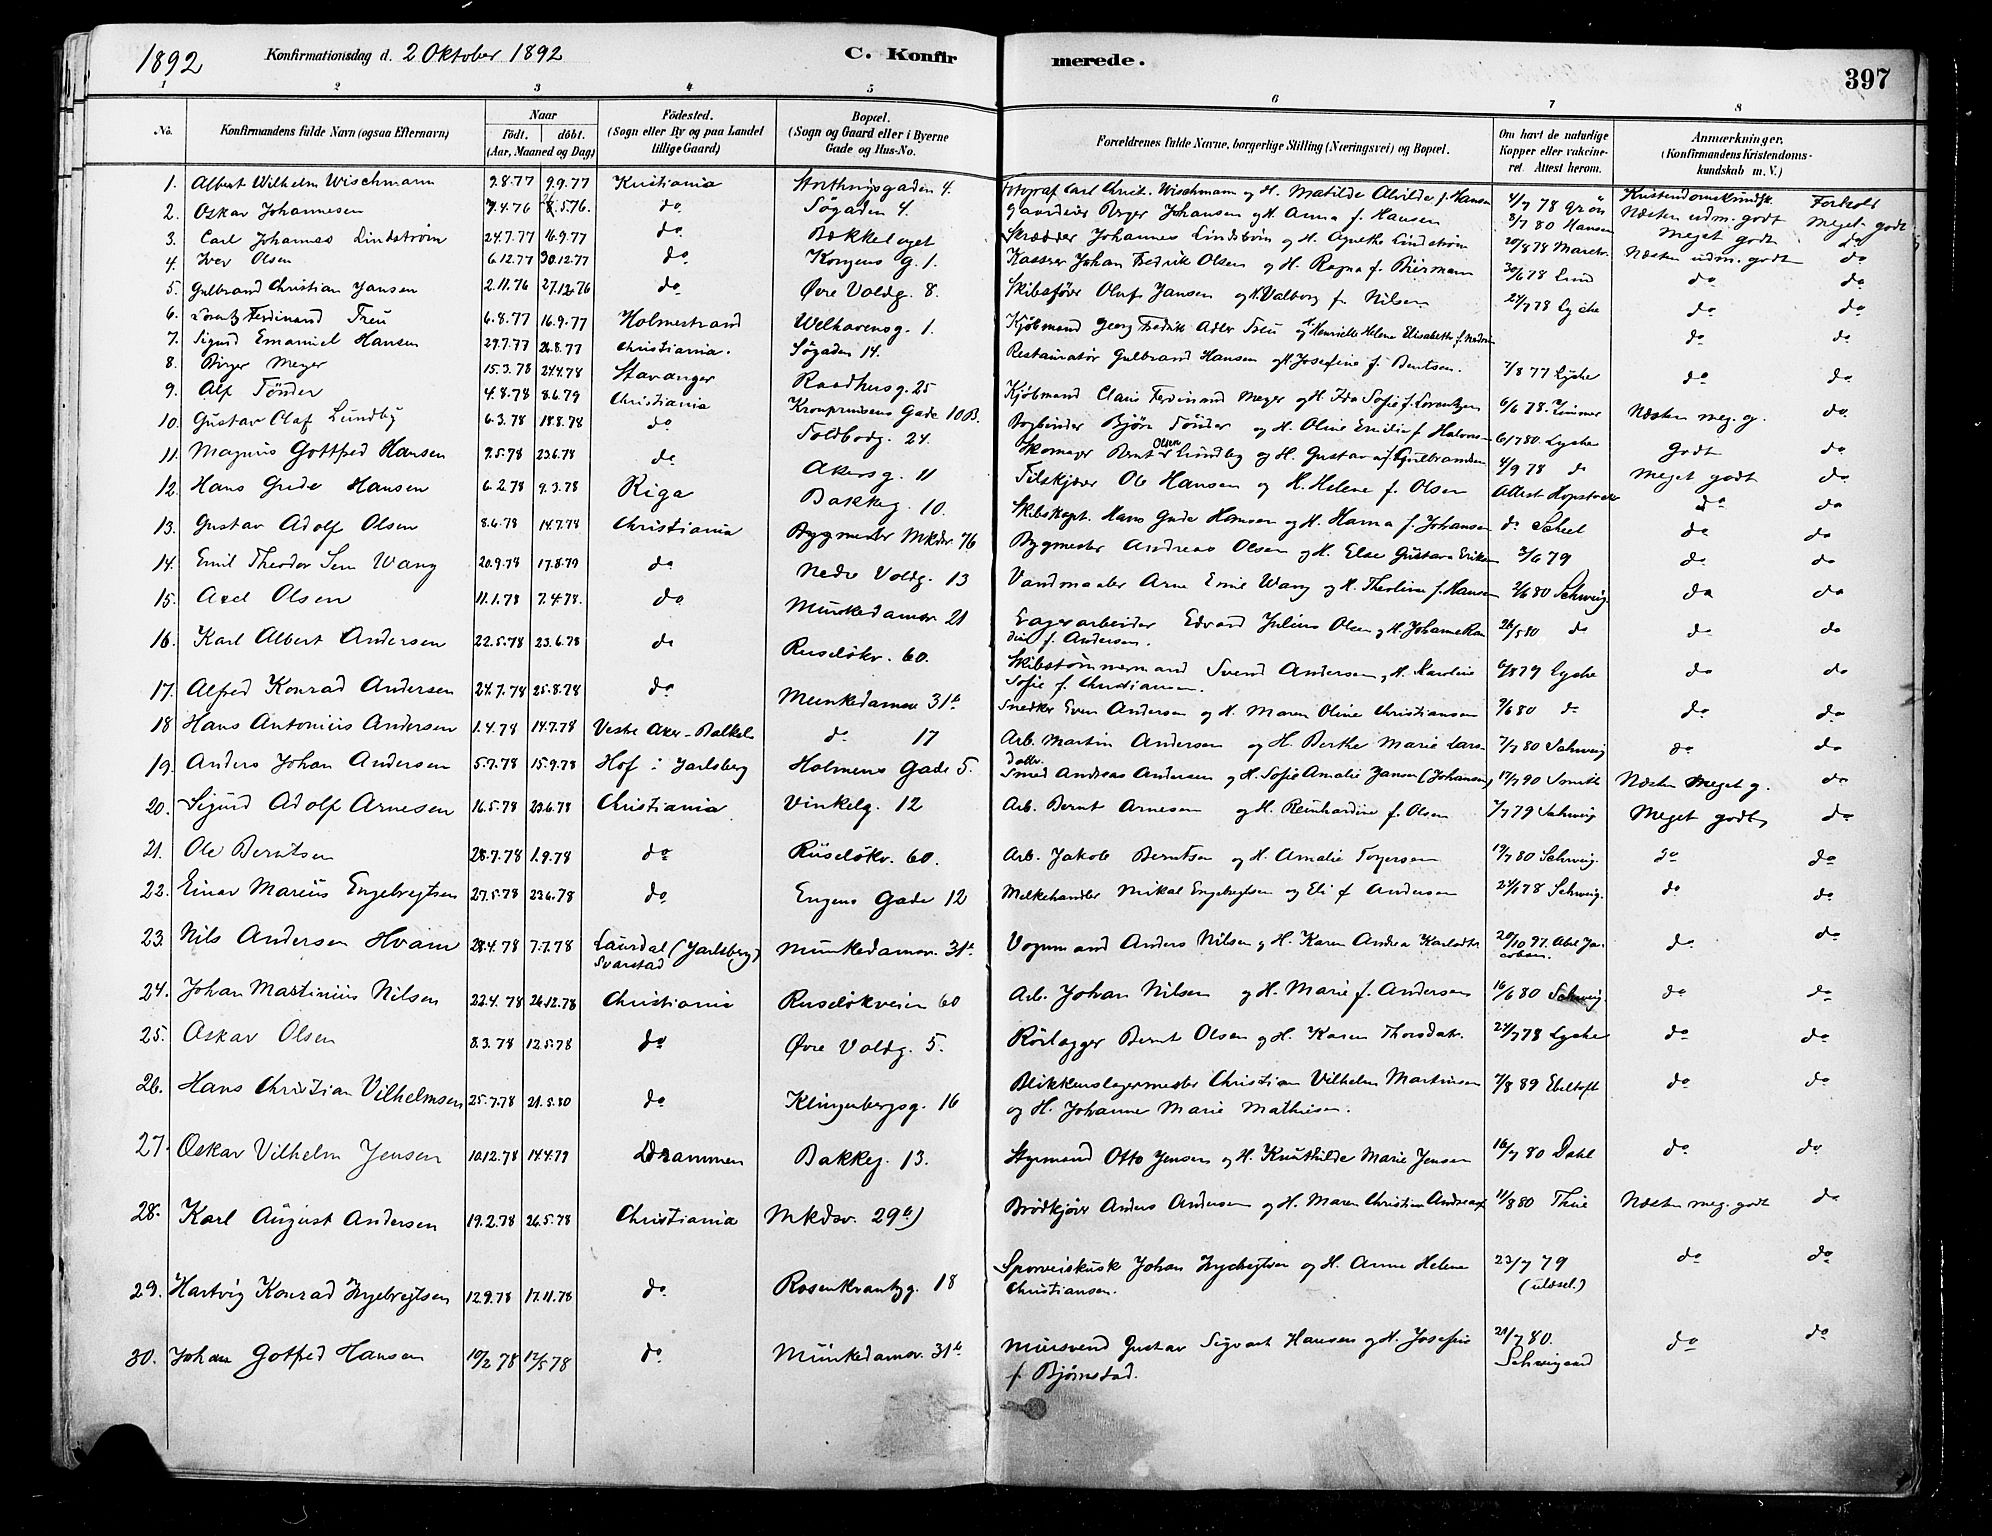 1892 Konfirmationsdag d. 2 Oktober 1892 C. Konfir merede. 397
1 2 3 4 5 6 7 8
No. Konfirmandens fulde Navn (ogsaa Efternavn) Naar födt. döbt. (Aar, Maaned og Dag) Födested. (Sogn eller By og paa Landet tillige Gaard) Bopæl. (Sogn og Gaard eller i Byerne Gade og Hus-No. Forældrenes fulde Navne, borgerlige Stilling (Næringsvei) og Bopæl. Om havt de naturlige Kopper eller vakcineret. Attest herom. Anmærkninger, (Konfirmandens Kristendomskundskab m. V.)
1. Albert Wilhelm Wischmann 9.8.77 9.9.77 Kristiania Storthingsgaden 4. Fotograf Carl Christ. Wischmann og H. Matilde Alvilde f. Hansen 4/7 78 Grön Kristendomskundsk. Forhold
2. Oskar Johannesen 7.4.76 8.5.76. do Søgaden 4. Gaardeier Birger Johansen og H. Anna f. Hansen 8/7 80 Hansen Næsten udm. godt Meget godt
3. Carl Johannes Lindström 24.7.77 16.9.77 do Bækkelaget Skrædder Johannes Lindström og H. Agnethe Lindström 20/8 78 Meget godt do
4. Iver Olsen 6.12.77 30.12.77 do Kongens g. 1. Kasserer Johan Fredrik Olsen og H. Ragna f. Biermann 30/6 78 Lind Næsten udm. godt do
5. Gulbrand Christian Jansen 2.11.76 27.12.76 do Øvre Voldg. 8. Skibsfører Oluf Jansen og H. Valborg f. Nilsen 21/7 78 Lyche do do
6. Lorentz Ferdinand Treu 6.8.77 16.9.77 Holmestrand Welhavensg. 1. Kjøbmand Georg Fredrik Adler Treu og H. Henriette Helene Elisabeth f. do do
7. Sigurd Emanuel Hansen 29.7.77 26.8.77 Christiania. Søgaden 14. Restauratör Gulbrand Hansen og H. Josefine f. Berntsen. 7/8 77 Lyche do do
8. Birger Meyer 15.3.78 24.4.78 Stavanger Raadhusg. 25 Kjøbmand Claus Ferdinand Meyer og H. Ida Sofie f. Lorentzen 6/6 78. Zimmer do do
9. Alf Tönder 4.8.78 8.6.79 Christiania Kronprinsens Gade 10 B. Bogbinder Björn Tönder og H. Oline Emilie f. Halvorsen 6/7 80 Lyche Næsten meg. g. do
10. Gustav Olaf Lundby 6.3.78 18.8.78 do Toldbodg. 24. Skomager Bernt Olsen Lundby og H. Gustava f. Gulbrandsen 4/9 78 do Godt do
11. Magnus Gottfred Hansen 9.5.78 23.6.78 do Akersg. 11 Tilskjærer Ole Hansen og H. Helene f. Olsen Attest Hopstock Meget godt do
12. Hans Gude Hansen 6.2.78 9.3.78 Riga Bakkeg. 10. Skibskapt. Hans Gude Hansen og H. Hanna f. Johansen do Scheel do do
13. Gustav Adolf Olsen 8.6.78 14.7.78 Christiania Bygmester Mkdsv 76 Bygmester Andreas Olsen og H. Else Gustava Eriksen 3/6 79 do do
14. Emil Theodor Sem Wang 20.9.78 17.8.79 do Nedre Voldg. 13 Vandmaaler Arne Emil Wang og H. Theoline f. Hansen 2/6 80 Schweig. do do
15. Axel Olsen 11.1.78 7.4.78. do Munkedamsv. 21 Lagerarbeider Edvard Julius Olsen og H. Johanne Randine f. Andersen. 26/5 80 do do do
16. Karl Albert Andersen 22.5.78 23.6.78 do Ruseløkv. 60. Skibstømmermand Svend Andersen og H. Karoline Sofie f. Christiansen. 6/8 79 Lyche do do
17. Alfred Konrad Andersen 27.7.78 25.8.78 do Munkedamsv 31b Snedker Even Andersen og H. Maren Oline Christiansen 9/6 80 do do do
18 Hans Antonius Andersen 1.4.78 14.7.78 Vestre Aker - Balkeby do 17 Arb. Martin Andersen og H. Berthe Marie Larsdatter. 7/7 80 Schweig do do
19. Anders Johan Andersen 5.7.78 15.9.78 Hof i Jarlsberg Holmens Gade 5. Smed Andreas Andersen og H. Sofie Amalie Jansen (Johansen) 17/7 90 Smith Næsten Meget g. do
20. Sigurd Adolf Arnesen 16.5.78 23.6.78 Christiania Vinkelg. 12 Arb. Bernt Arnesen og H. Reinhardine f. Olsen 7/7 79 Schweig Meget godt do
21. Ole Berntsen 28.7.78 1.9.78 do Ruseløkv. 60. Arb. Jakob Berntsen og H. Amalie Torgersen 19/7 80 Schweig. do do
22. Einar Marius Engebregtsen 27.5.78 23.6.78 do Engens Gade 12 Melkehandler Mikal Engebregtsen og Eli f Andersen 24/1 78 Schweig. do do
23. Nils Andersen Hvam 28.4.78 7.7.78 Laurdal (Jarlsberg) Svarstad Munkedamsv. 31b Vognmand Anders Nilsen og H. Karen Andrea Karlsdtr 20/10 97. Abel Jacobsen. do do
24. Johan Martinius Nilsen 22.4.78 26.12.78 Christiania Ruseløkveien 60 Arb. Johan Nilsen og H. Marie f. Andersen 16/6 80 Schweig. do do
25. Oskar Olsen 8.3.78 12.5.78 do Øvre Voldg. 5. Rörlægger Bernt Olsen og H. Karen Thorsdatr. 24/7 78 Lyche do do
26. Hans Christian Vilhelmsen 25.7.78 21.8.80 do Klingenbergsg. 16 Blikkenslagermester Christian Vilhelm Martinsen og H. Johanne Marie Mathisen. 7/8 89 Ebeltoft do do
27. Oskar Vilhelm Jensen 10.12.78 14.4.79 Drammen Bakkeg. 13. Styrmand Otto Jensen og H. Knuthilde Marie Jensen 16/7 80 Dahl do do
28. Karl August Andersen 19.2.78 26.5.78 Christiania Mkdsv. 29b) Brødkjører Anders Andersen og H. Maren Christine Andreasd 11/8 80 Thue Næsten meg. godt do
29. Hartvig Konrad Engebregtsen 12.9.78 17.11.78 do Rosenkrantzg. 18 Sporveiskusk Johan Engebregtsen og H. Anne Helene Christiansen. 23/7 79 (ulæsel.) do do
30. Johan Gotfred Hansen 10/2 78 12/5 78 do Munkedamsv. 31b Mursvend Gustav Sigvart Hansen og H. Josefine f. Bjørnstad. 21/7 80. Schweigaard do do